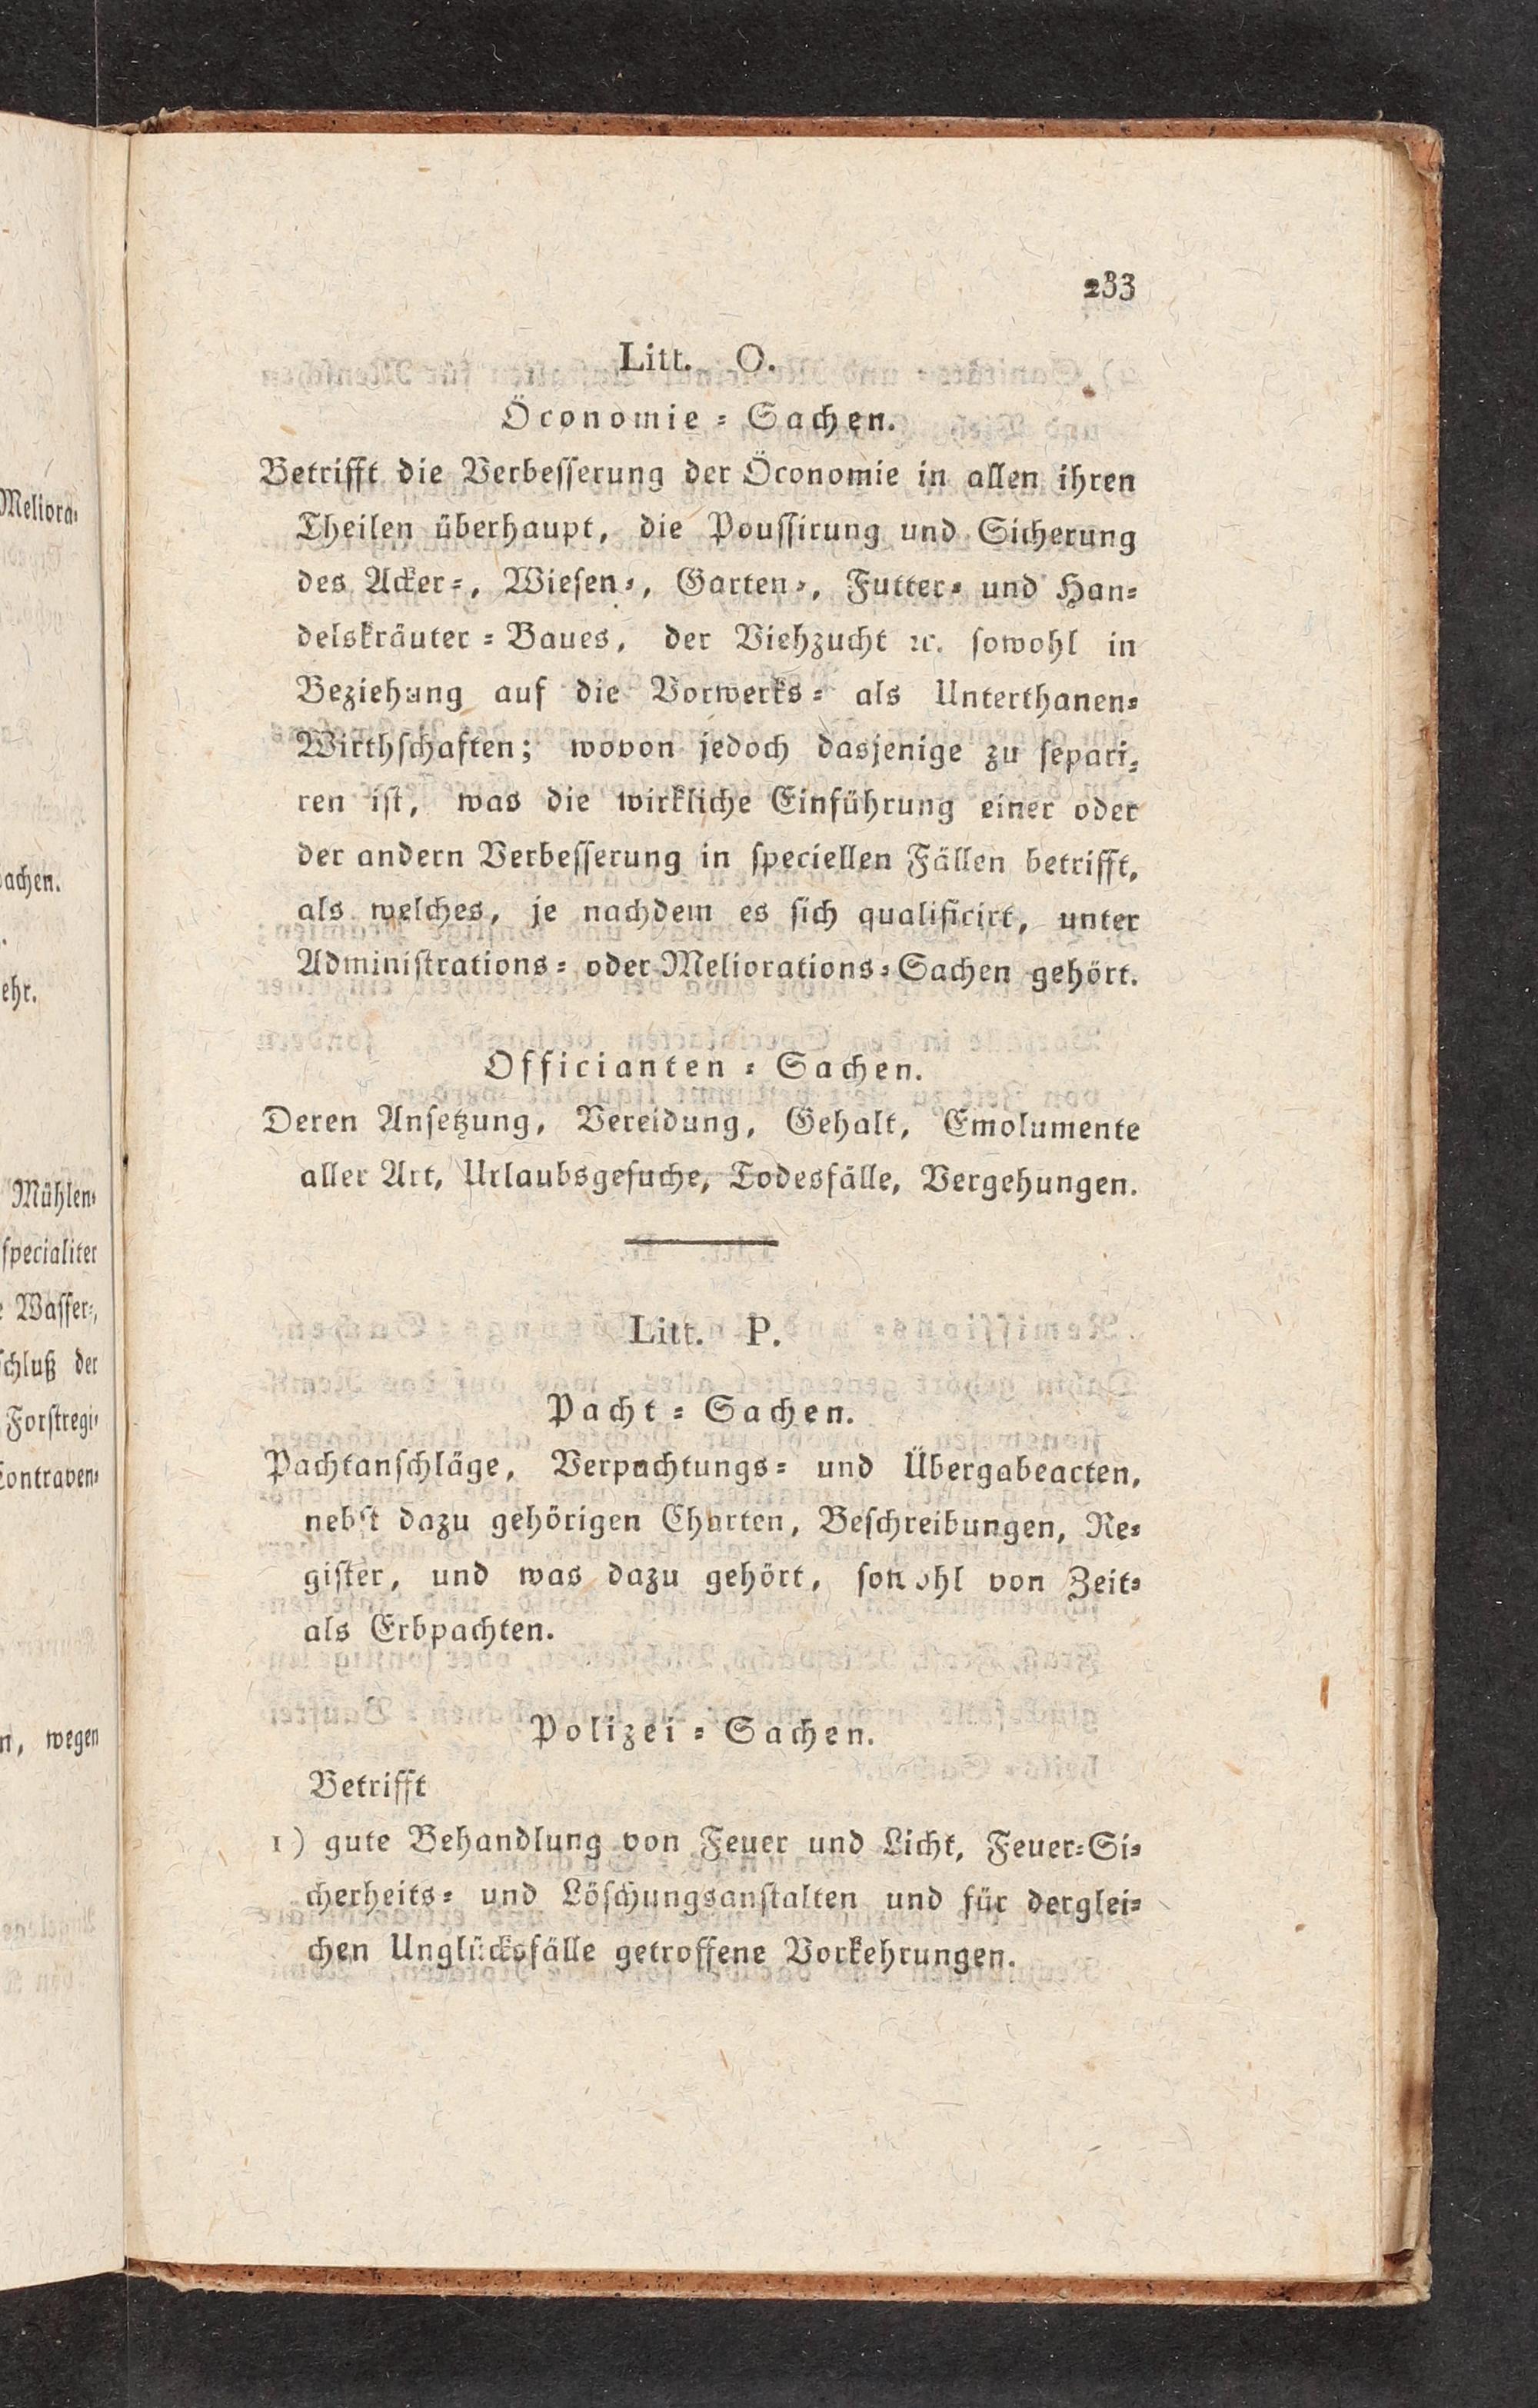 Meliora⸗
achen.
ehr.
Mühlen⸗
specialiter
Wasser⸗,
schluß der
Forstregi⸗
Contraven⸗
wegen
233
Litt. O.
Öconomie⸗Sachen.
Betrifft die Verbesserung der Öconomie in allen ihren
Theilen überhaupt, die Poussirung und Sicherung
des Acker⸗, Wiesen⸗, Garten⸗, Futter⸗ und Han⸗
delskräuter⸗Baues, der Viehzucht ꝛc. sowohl in
Beziehung auf die Vorwerks⸗ als Unterthanen⸗
Wirthschaften; wovon jedoch dasjenige zu separi⸗
ren ist, was die wirkliche Einführung einer oder
der andern Verbesserung in speciellen Fällen betrifft,
als welches, je nachdem es sich qualificirt, unter
Administrations⸗ oder Meliorations⸗Sachen gehört.
Officianten⸗Sachen.
Deren Ansetzung, Vereidung, Gehalt, Emolumente
aller Art, Urlaubsgesuche, Todesfälle, Vergehungen.
Litt. P.
Pacht⸗Sachen.
Pachtanschläge, Verpachtungs⸗ und Übergabeacten,
nebst dazu gehörigen Charten, Beschreibungen, Re⸗
gister, und was dazu gehört, sowohl von Zeit⸗
als Erbpachten.
Polizei⸗Sachen.
Betrifft
1) gute Behandlung von Feuer und Licht, Feuer⸗Si⸗
cherheits⸗ und Löschungsanstalten und für derglei⸗
chen Unglücksfälle getroffene Vorkehrungen.